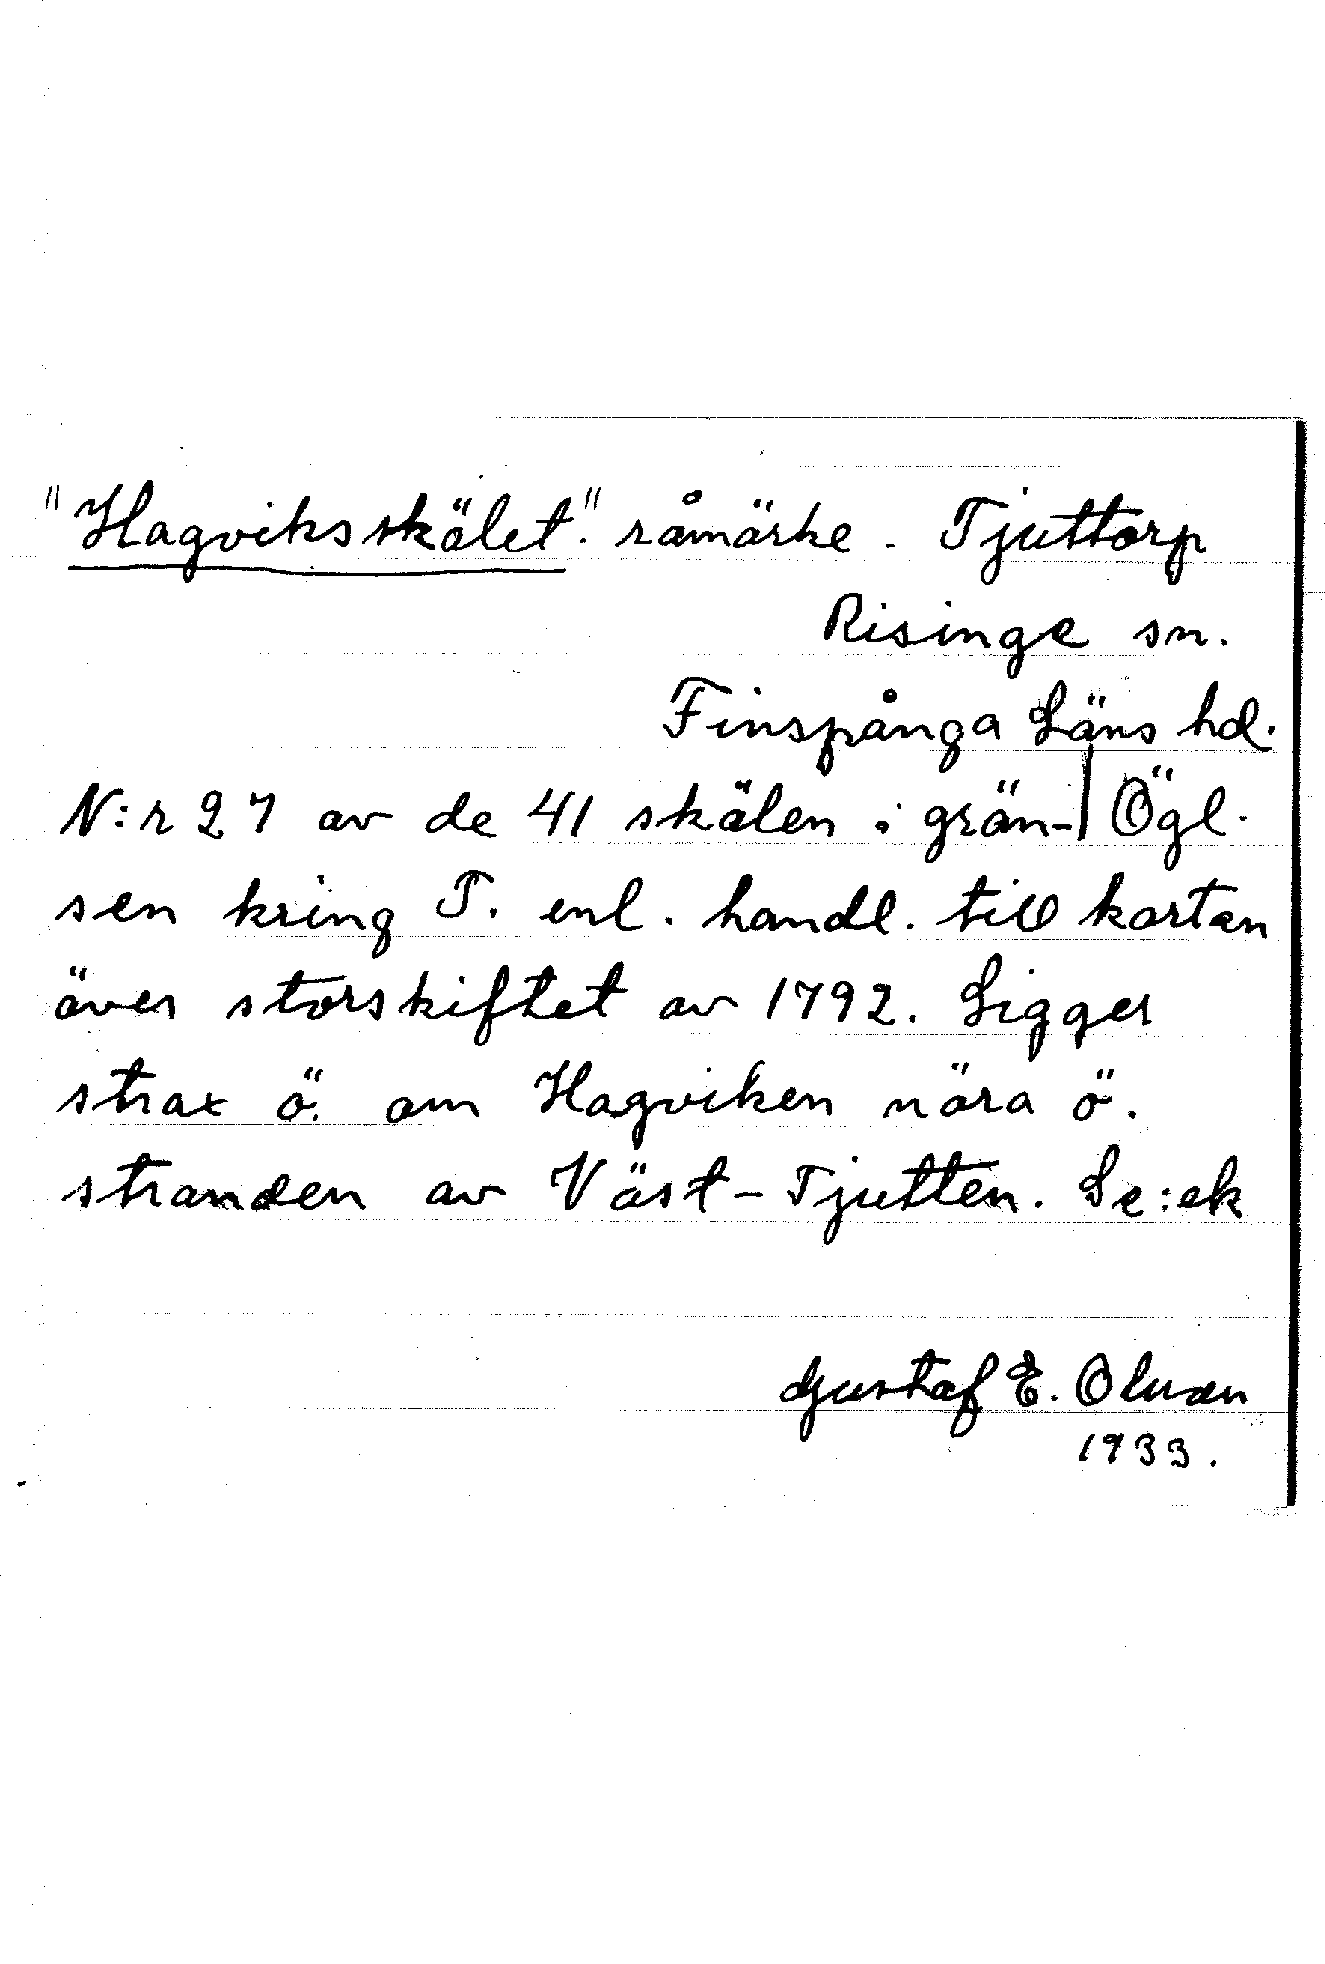 "Hagviksskälet". råmärke. Tjuttorp
Risinge sn.
Finspånga Läns hd.
Ögl.
N:r 27 av de 41 skälen i grän-
sen kring T. enl. handl. till kartan
över storskiftet av 1792. Ligger
strax ö. om Hagviken nära ö.
stranden av Väst-Tjutten. Se:ek
Gustaf E. Olsson
1933.